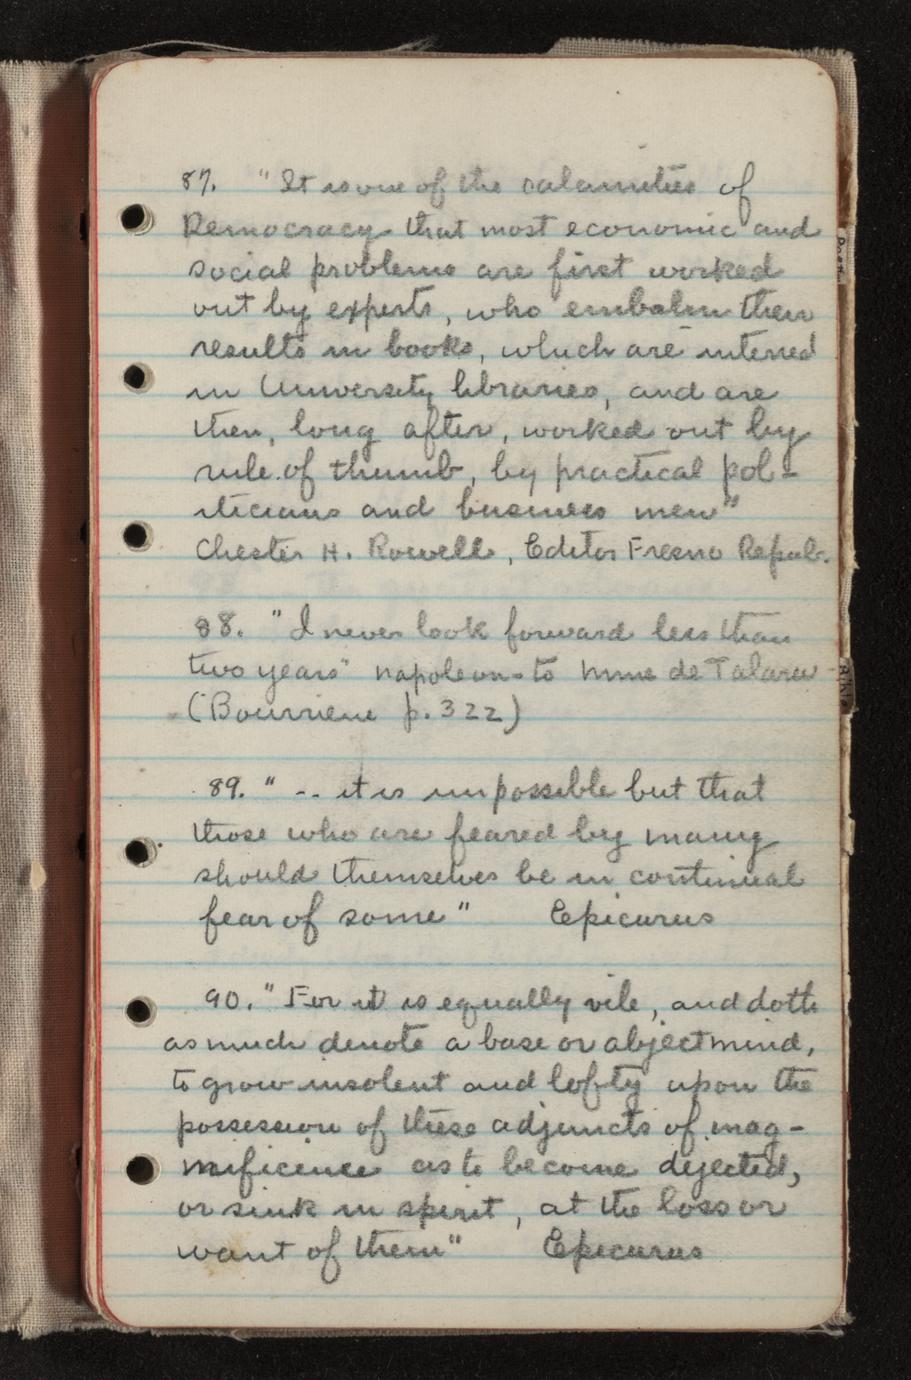 87. "It is one of the calamities of
Democracy that most economic and
social problems are first worked
out by experts, who embalm their
results in books, which are interred
in University libraries, and are
then, long after, worked out by
rule of thumb, by practical pol-
iticians and business men"
Chester H. Rowell, Editor Fresno Repub.
88. "I never look forward less than
two years" napoleon to Mme de Talara
(Bourriene p. 322)
89. " -- it is impossible but that
those who are feared by many
should themselves be in continual
fear of some" Epicurus
90. "For it is equally vile, and doth
as much denote a base or abject mind,
to grow insolent and lofty upon the
possession of these adjuncts of mag-
nificence as to become dejected,
or sink in spirit, at the loss or
want of them" Epicurus